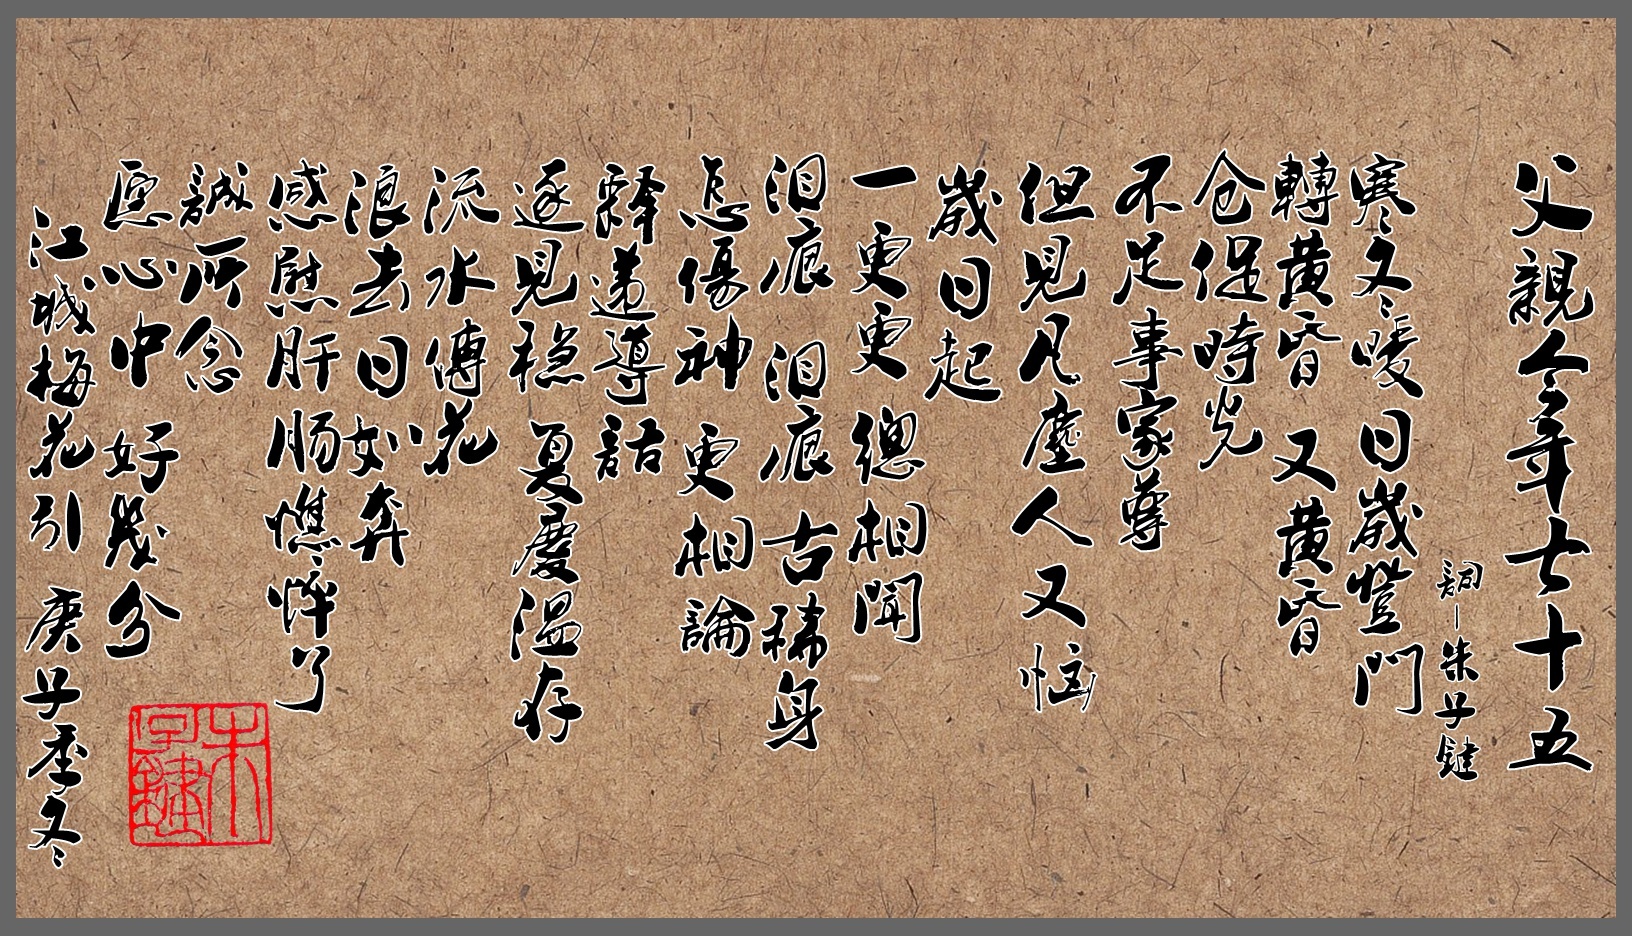 父親今年七十五
詞一朱子鍵
寒冬暖日歲登門
轉黃昏 又黃昏
仓促時光
不足事家尊
但見凡塵人又恼
歲日起
一更更 總相聞
泪痕 泪痕 古稀身
怎傷神 更相論
釋遞導話
逐見稳 夏慶温存
流水傳花
浪去日如奔
感慰肝肠憔悴了
誠所念
愿心中 好幾分
江城梅花引 庚子季冬
朱子鍵